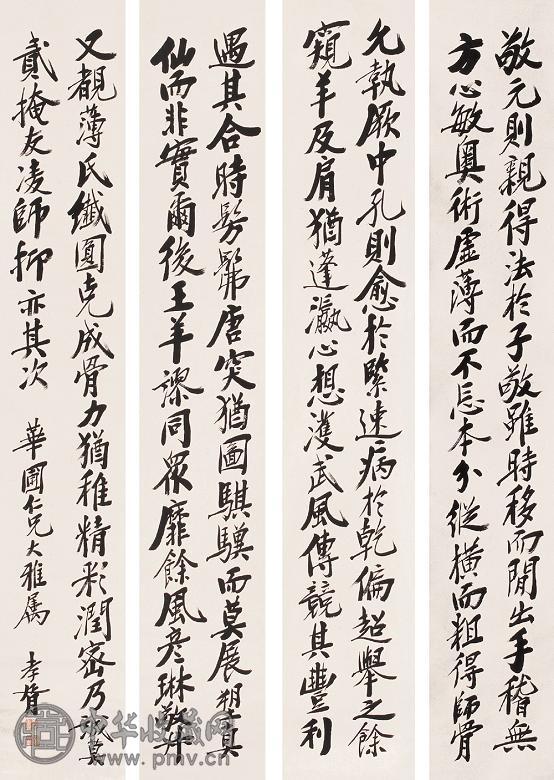 敬元則親得法於子敬雖時移而閒出手稽無
方心敏奧術虛薄而不忘本分縱橫而粗得師骨
允執厥中孔則愈於緊速病於乾偏超舉之餘
窺羊及肩猶蓬瀛心想濩武風傳競其豐利
遇其合時髣髴唐突猶圖騏驥而莫展想真
仙而非實爾後王羊謬同眾靡餘風彥琳敬
又覩薄氏纖圓克成骨力猶稚精彩潤密乃誠莫
貳掩友凌師抑亦其次 華圃仁兄大雅属 孝胥
中华收藏网
www.pmv.cn